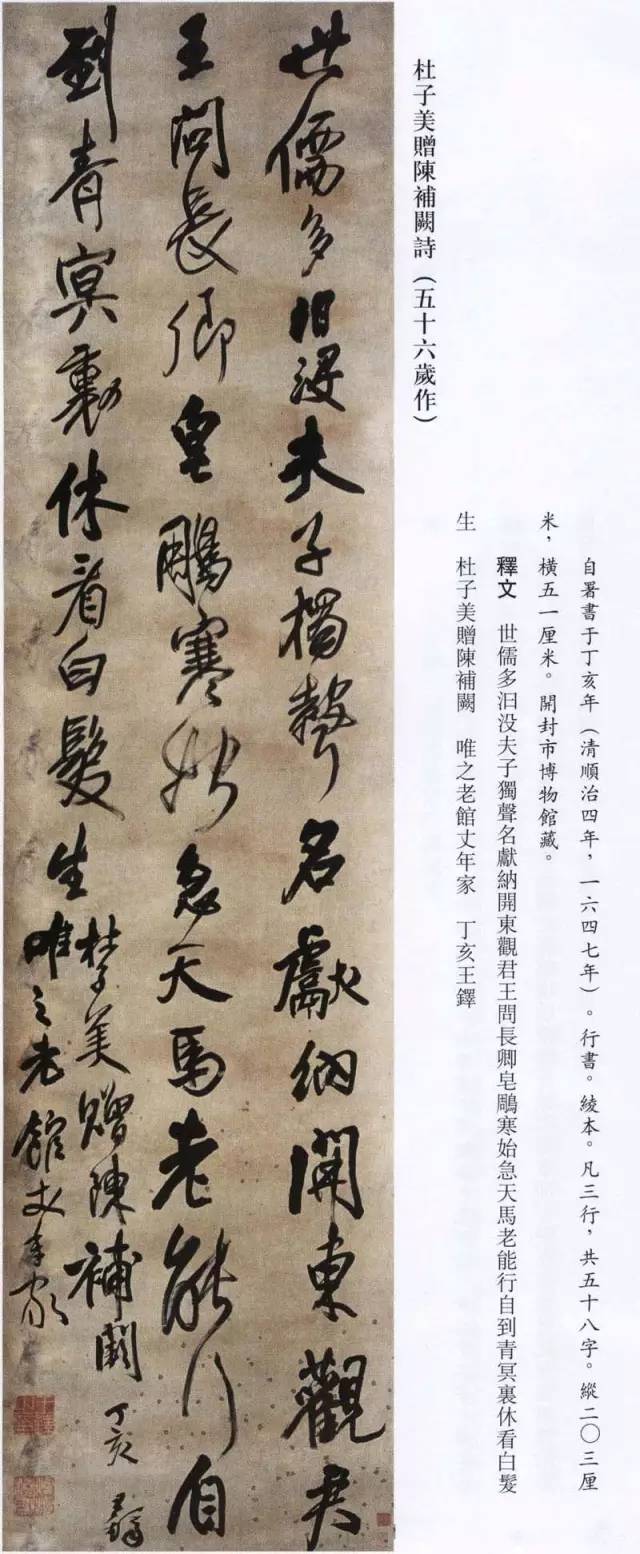 杜子美贈陳補闕詩（五十六歲作）
自署書于丁亥年（清順治四年，一六四七年）。行書。綾本。凡三行，共五十八字。縱二〇三厘
米，橫五一厘米。開封市博物館藏。
釋文　世儒多汩没夫子獨聲名獻納開東觀君王問長卿皂鵰寒始急天馬老能行自到青冥裏休看白髮
生　杜子美贈陳補闕　唯之老館丈年家　丁亥王鐸
世儒多汩没夫子獨聲名獻納開東觀君
王問長卿皂鵰寒始急天馬老能行自
到青冥裏休看白髮生
杜子美贈陳補闕 丁亥 王鐸
唯之老館丈年家